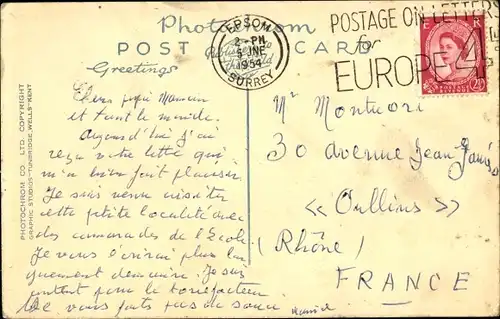 Photochrom
POST CARD
Greetings
EPSOM
2-PM
5 JNE
1954
SURREY
POSTAGE ON LETTERS
for
EUROPE 4
PHOTOCHROM CO LTD. COPYRIGHT
GRAPHIC STUDIOS-TUNBRIDGE WELLS-KENT
Chers papa Maman
et tout le monde.
Aujourd'hui j'ai
reçu votre lettre qui
m'a bien fait plaisir.
Je suis venu visiter
cette petite localité avec
des camarades de l'Ecole
Je vous l'écrirai plus lon
guement demain. Je suis
content pour le
Ne vous faites pas de souci
Mr Montuori
30 avenue Jean Jaurès
<< Oullins >>
(Rhône)
FRANCE